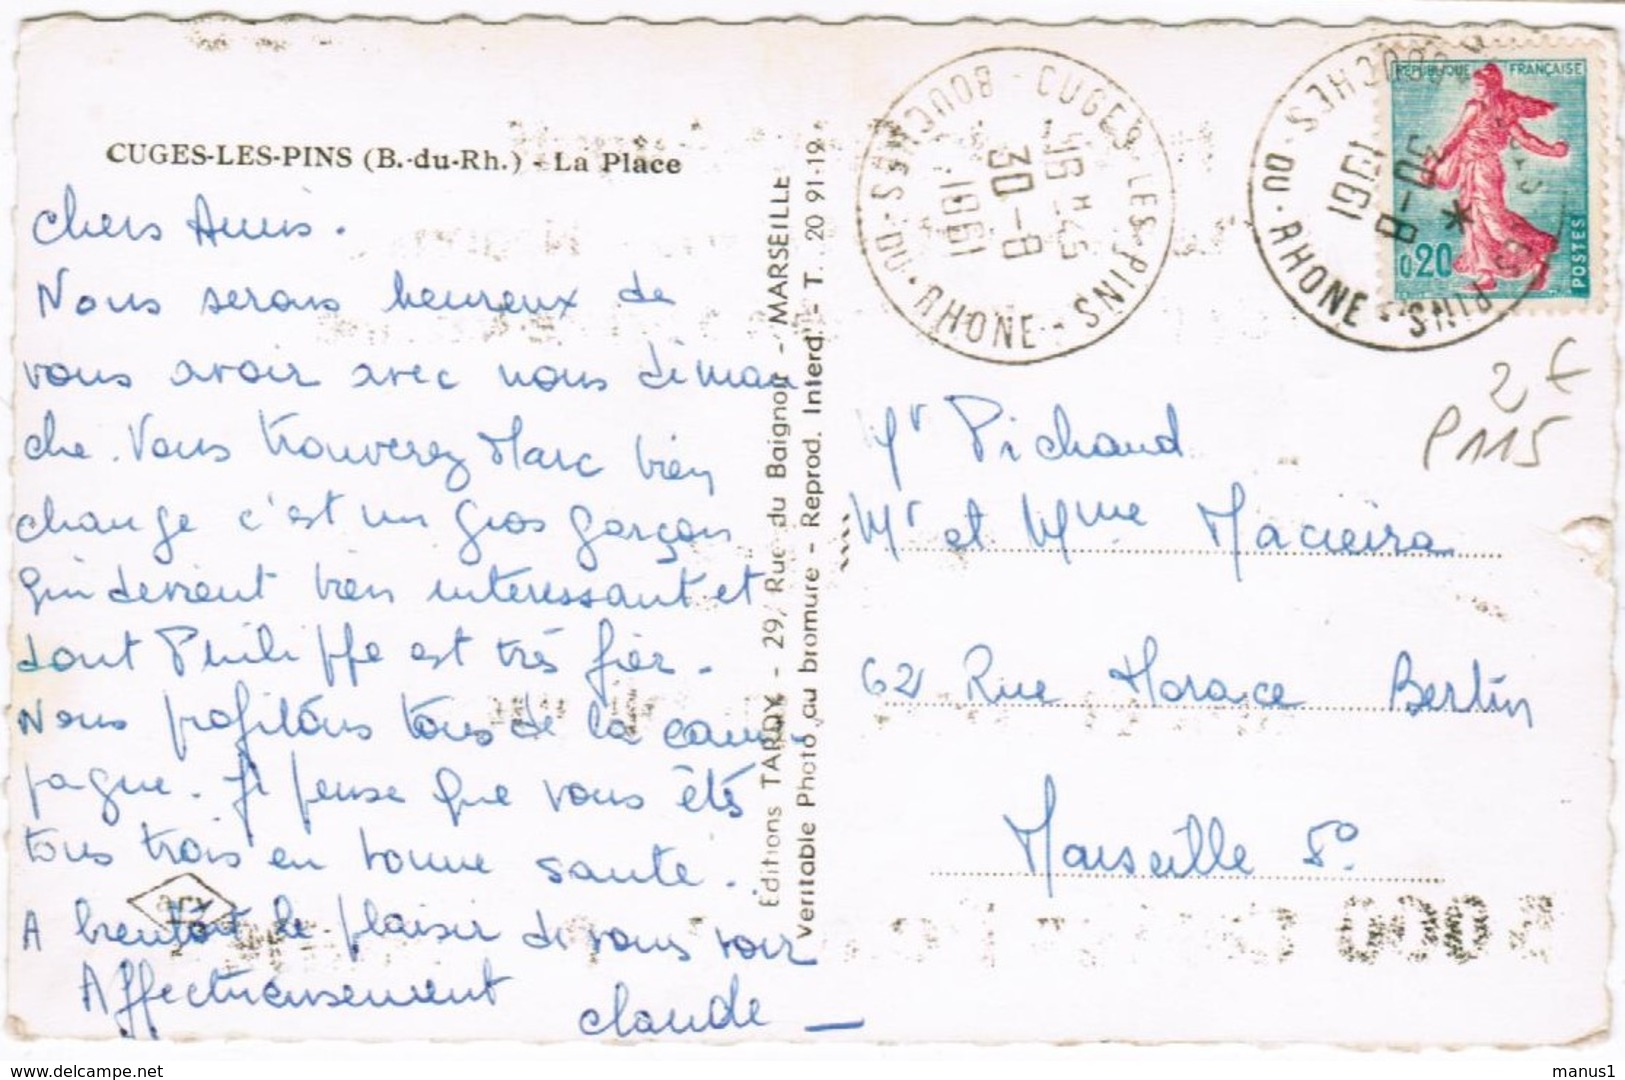 CUGES-LES-PINS (B.-du-Rh.) - La Place
chers Amis.
Nous serons heureux de
vous avoir avec nous diman
che. Vous trouverez Marc bien
change c'est un gros garçon
qui devient bien interessant et
dont Philippe est très fier.
Nous profitons tous de la cam-
pagne. Je pense que vous êtes
tous trois en bonne santé..
A bientôt le plaisir de vous voir
Affectueusement
claude
Editions TARDY - 29, Rue du Baignoir - MARSEILLE
Veritable Photo au bromure - Reprod. Interd. - T. 20 91-19
CUGES-LES-PINS
BOUCHES-DU-RHONE
16 H 45
30-8
1961
BOUCHES-DU-RHONE
PINS
30-8
1961
REPUBLIQUE FRANÇAISE
0,20
POSTES
2 €
P115
Mr Pichaud
Mr et Mme Macieira
62 Rue Horace Bertin
Marseille 5°
manus1